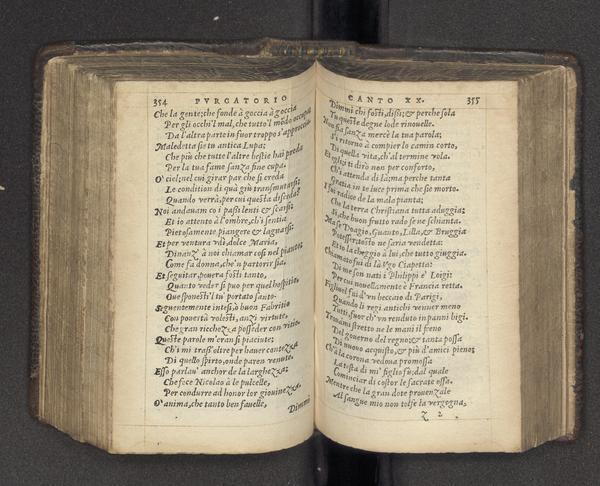 354 PVRGATORIO
Che la gente; che fonde à goccia à goccia
Per gli occhi'l mal, che tutto'l mõdo occupa;
Da l'altra parte in fuor troppo s'approccia.
Maledetta sie tu antica Lupa;
Che più che tutte l'altre bestie hai preda
Per la tua fame sanza fine cupa.
O' ciel; nel cui girar par che si creda
Le condition di qua giù transmutarsi;
Quando verrà, per cui questa disceda?
Noi andauam co i passi lenti & scarsi;
Et io attento à l'ombre, ch'i sentia
Pietosamente piangere & lagnarsi:
Et per ventura vdì, dolce Maria,
Dinanz' à noi chiamar così nel pianto;
Come fa donna, che'n partorir sia,
Et seguitar, pouera fosti tanto,
Quanto veder si puo per quel hospitio,
Oue sponesti'l tu' portato santo.
Seguentemente intesi, ò buon Fabritio
Con pouertà volesti, anzi virtute,
Che gran ricchezza posseder con vitio.
Queste parole m'eran si piaciute;
Ch'i mi trass'oltre per hauer contezza
Di quello spirto, onde parean venute.
Esso parlau' anchor de la larghezza;
Che fece Nicolao à le pulcelle,
Per condurre ad honor lor giouinezza.
O' anima, che tanto ben fauelle,
Dimmi
CANTO XX. 355
Dimmi chi fosti, dissi; & perche sola
Tu queste degne lode rinouelle.
Non fia sanza mercè la tua parola;
S'i ritorno à compier lo camin corto,
Di quella vita, ch'al termine vola.
Et egli; i ti dirò non per conforto,
Ch'i attenda di là; ma perche tanta
Gratia in te luce prima che sie morto.
I fui radice de la mala pianta;
Che la terra Christiana tutta aduggia;
Si, che buon frutto rado se ne schianta.
Ma se Doagio, Guanto, Lilla, & Bruggia
Potesser; tosto ne saria vendetta:
Et io la cheggio à lui, che tutto giuggia.
Chiamato fui di là Vgo Ciapetta:
Di me son nati i Philippi e' Loigi;
Per cui nouellamente è Francia retta.
Figliuol fui d'vn beccaio di Parigi,
Quando li regi antichi venner meno
Tutti, fuor ch'vn renduto in panni bigi.
Trouàmi stretto ne le mani il freno
Del gouerno del regno; & tanta possa
Di nuovo acquisto, & più d'amici pieno;
Ch'à la corona vedoua promossa
La testa di mi' figlio fu; dal quale
Cominciar di costor le sacrate ossa.
Mentre che la gran dote prouenzale
Al sangue mio non tolse la vergogna,
Z 2